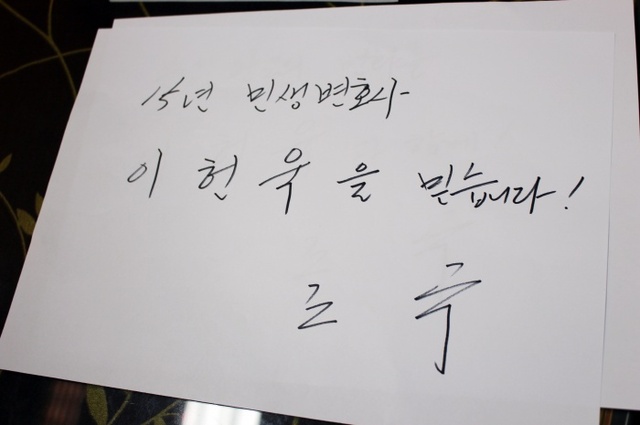 15년 민생변호사
이헌욱을 믿습니다!